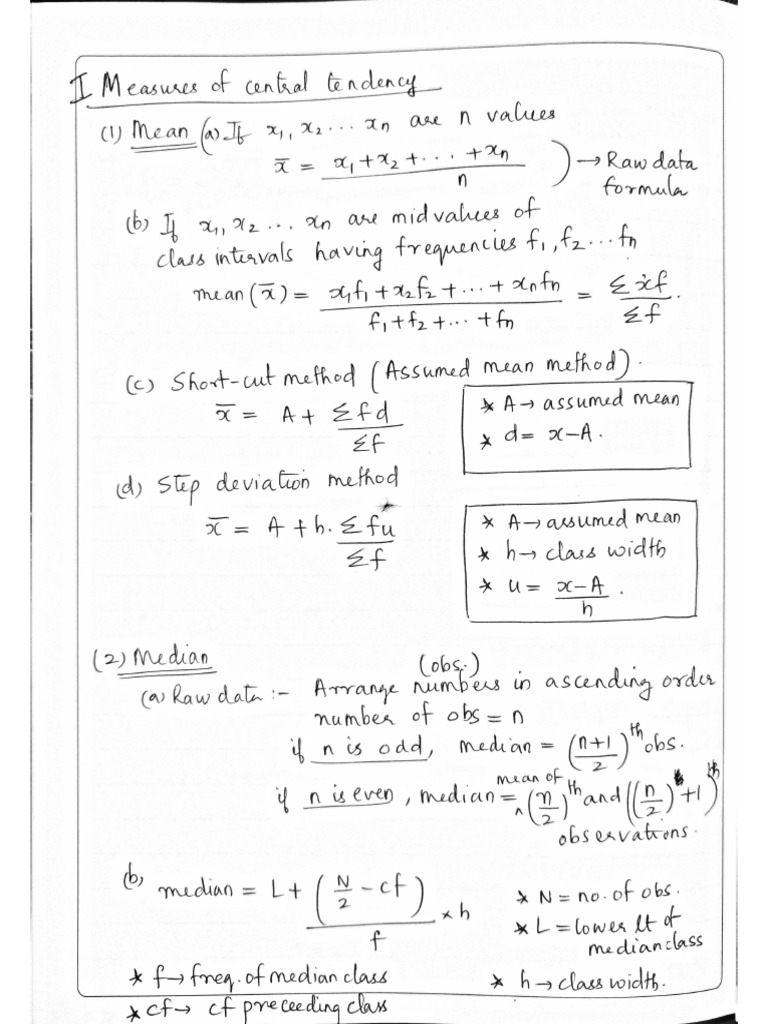 I Measures of central tendency
(1) Mean (a) If x₁, x₂ ... xₙ are n values
x̄ = (x₁+x₂+...+xₙ)/n → Raw data formula
(b) If x₁, x₂ ... xₙ are midvalues of
class intervals having frequencies f₁, f₂ ... fₙ
mean (x̄) = (x₁f₁+x₂f₂+...+xₙfₙ)/(f₁+f₂+...+fₙ) = Σxf/Σf.
(c) Short-cut method (Assumed mean method).
x̄ = A + Σfd/Σf
* A → assumed mean
* d = x-A.
(d) Step deviation method
x̄ = A + h. Σfu/Σf
* A → assumed mean
* h → class width
* u = (x-A)/h.
(2) Median
(a) Raw data :- Arrange numbers (obs.) in ascending order
number of obs = n
if n is odd, median = ((n+1)/2)th obs.
if n is even, median = mean of (n/2)th and ((n/2)+1)th
observations.
(b) median = L + (N/2 - cf)/f × h
* N = no. of obs.
* L = lower lt of
median class
* f → freq. of median class
* h → class width.
* cf → cf preceeding class